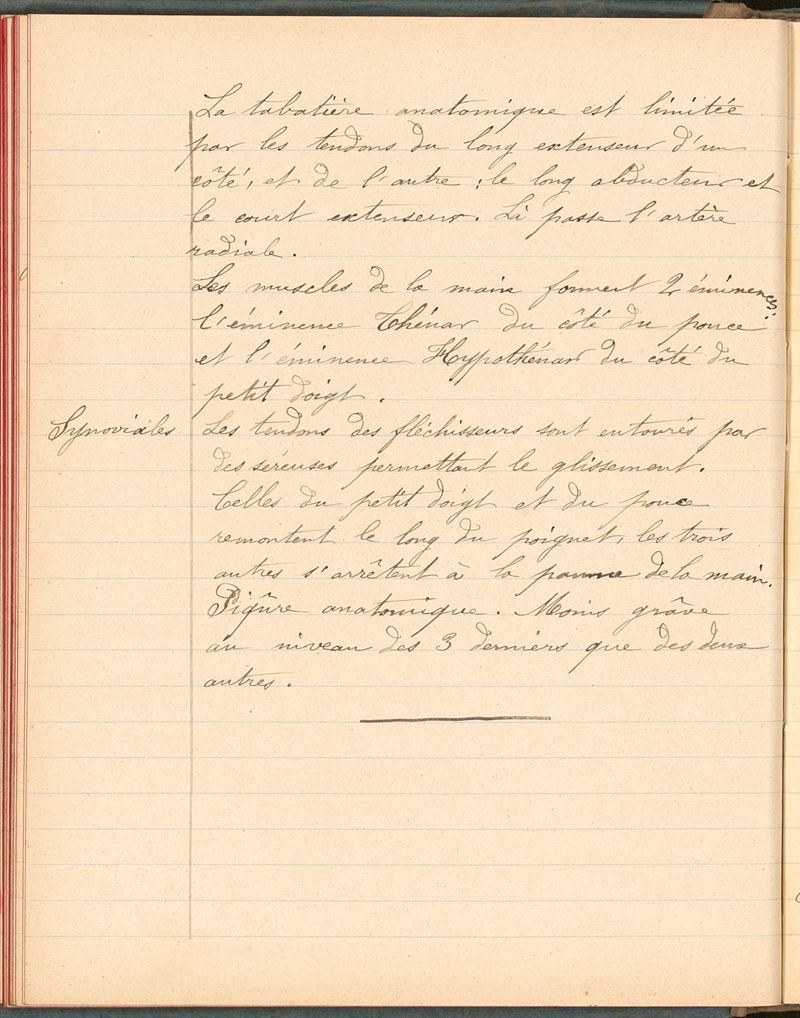 La tabatière anatomique est limitée
par les tendons du long extenseur d'un
côté, et de l'autre : le long abducteur et
le court extenseur. Là passe l'artère
radiale.
Les muscles de la main forment 2 éminences :
l'éminence Thénar du côté du pouce
et l'éminence Hypothénar du côté du
petit doigt.
Synoviales Les tendons des fléchisseurs sont entourés par
des séreuses permettant le glissement.
Celles du petit doigt et du pouce
remontent le long du poignet, les trois
autres s'arrêtent à la paume de la main.
Piqûre anatomique. Moins grâve
au niveau des 3 derniers que des deux
autres.